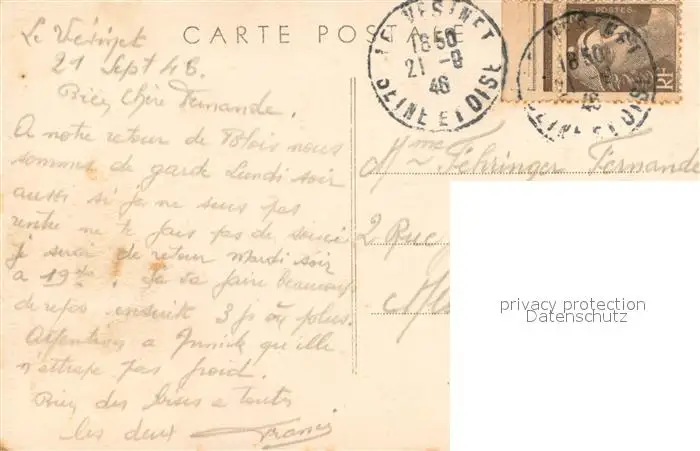 CARTE POSTALE
Le Vésinet
21 Sept 46.
Bien Chère Fernande.
A notre retour de Blois nous
sommes de garde Lundi soir
aussi si je ne suis pas
rentré ne te fais pas de souci
je serai de retour mardi soir
a 19h. Ça va faire beaucoup
de repos ensuite 3 js ou plus.
Attention a Annick qu'elle
n'attrape pas froid.
Bien des bises a toutes
les deux Francis
LE VESINET
18 50
21 -9
46
SEINE ET OISE
POSTES
RF
VESINET
18 50
46
OISE
Mme Fehringer Fernande
2 Rue
privacy protection
Datenschutz